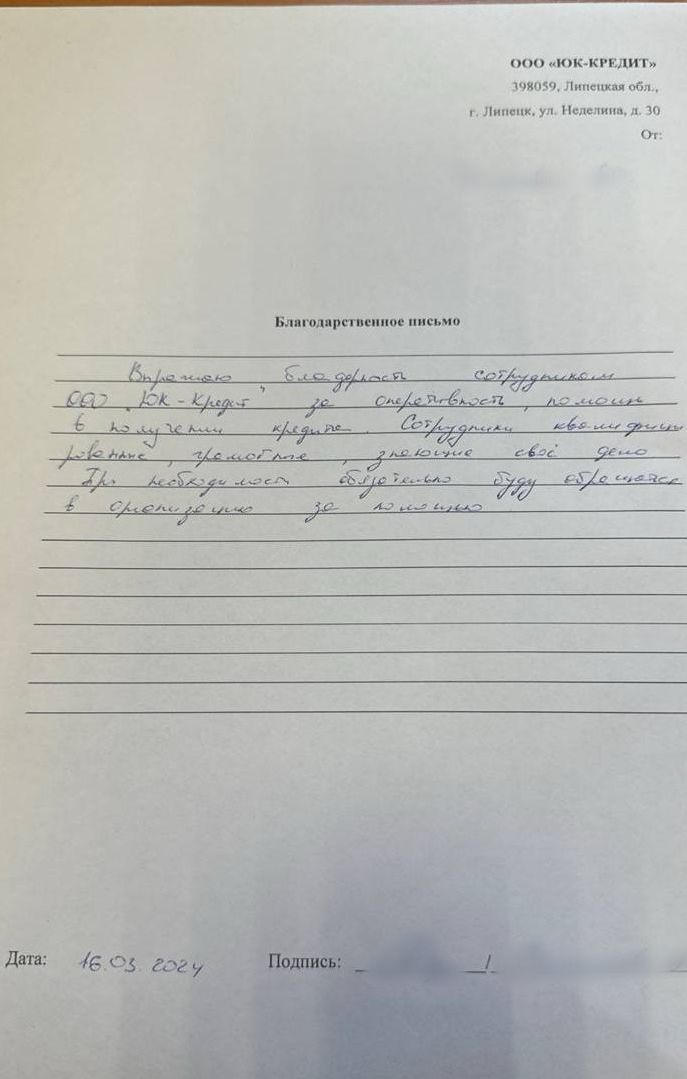 ООО «ЮК-КРЕДИТ»
398059, Липецкая обл.,
г. Липецк, ул. Неделина, д. 30
От:
Благодарственное письмо
Выражаю благодарность сотрудникам
ООО "ЮК-Кредит" за оперативность, помощь
в получении кредита. Сотрудники квалифици
рованные, грамотные, знающие своё дело
При необходимости обязательно буду обращаться
в организацию за помощью
Дата: 16.03.2024 Подпись: _ __/_